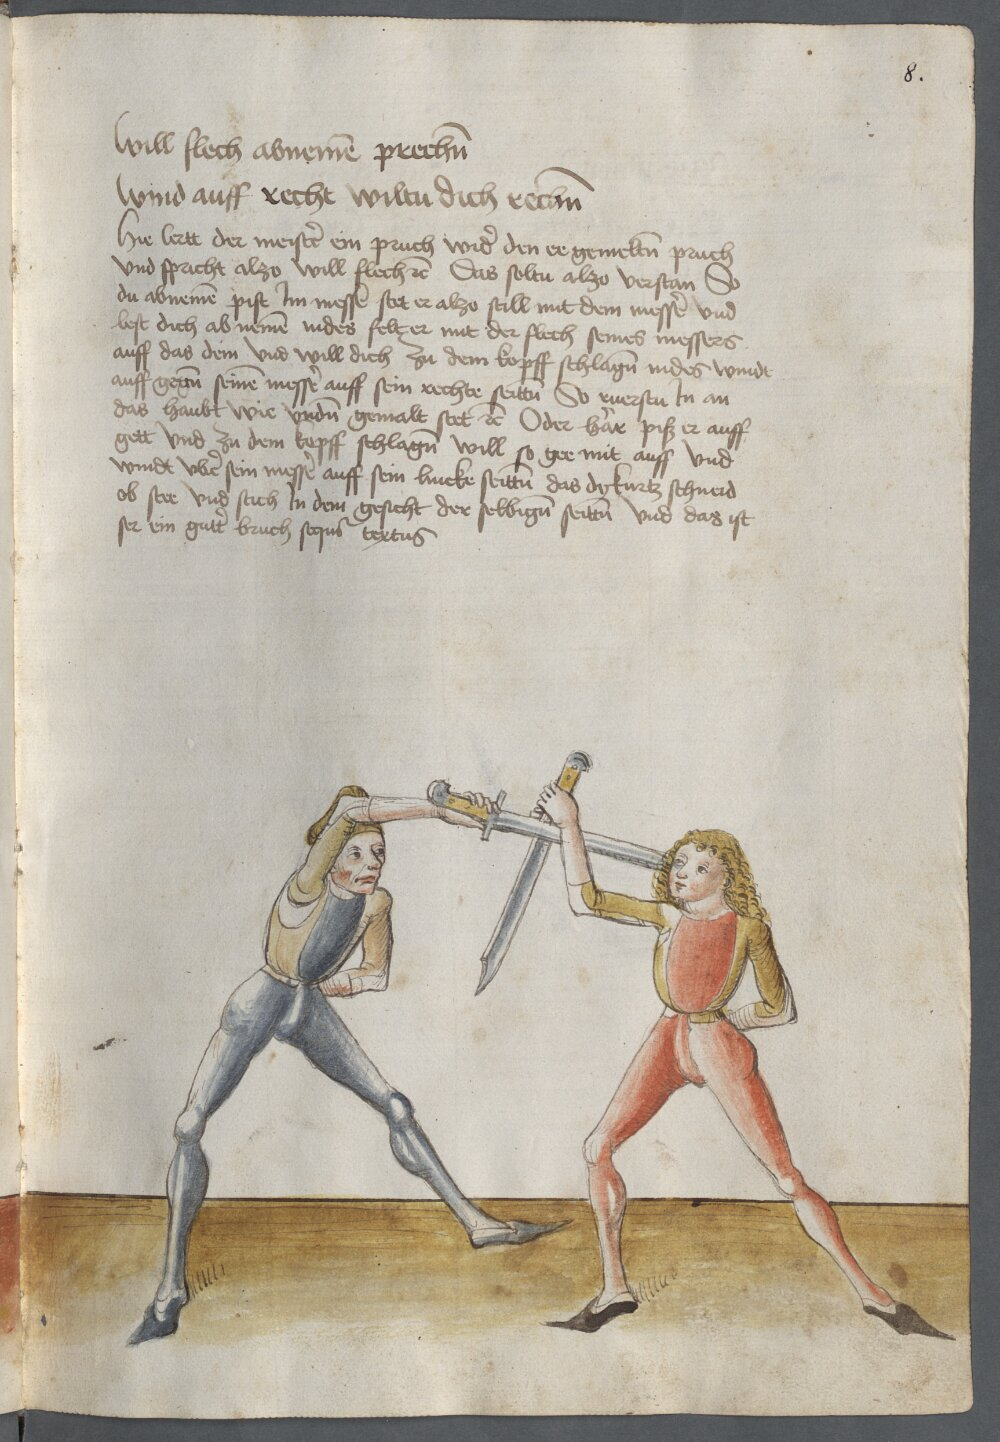 8.
Will flech abnemē prechn̄
Wind auff recht wiltu dich rechn̄
Hie lertt der meist̉ ein pruch wid̉ den ee gemeltn̄ pruch
und spricht alzo will flech rc̄ Das soltu alzo verstan So
du abnemē pist Im mess̉ stet er alzo still mit dem mess̉ und
lest dich ab nemē indes felt er mit der flech seines messers
auff das dein und will dich zu dem kopff schlagn̄ indes windt
auff gegn̄ seinē mess̉ auff sein rechte seittn̄ So ruerstu In an
das haubt wie undn̄ gemalt stet rc̄ Oder

 piß er auff
gett und zu dem kopff schlagn̄ will so gee mit auff und
windt ub̉ sein mess̉ auff sein lincke seittn̄ das dy kurtz schneid
ob stee und stich In dem gesicht der selbign̄ seittn̄ und das ist
ser ein gutt̉ bruch sequī textus